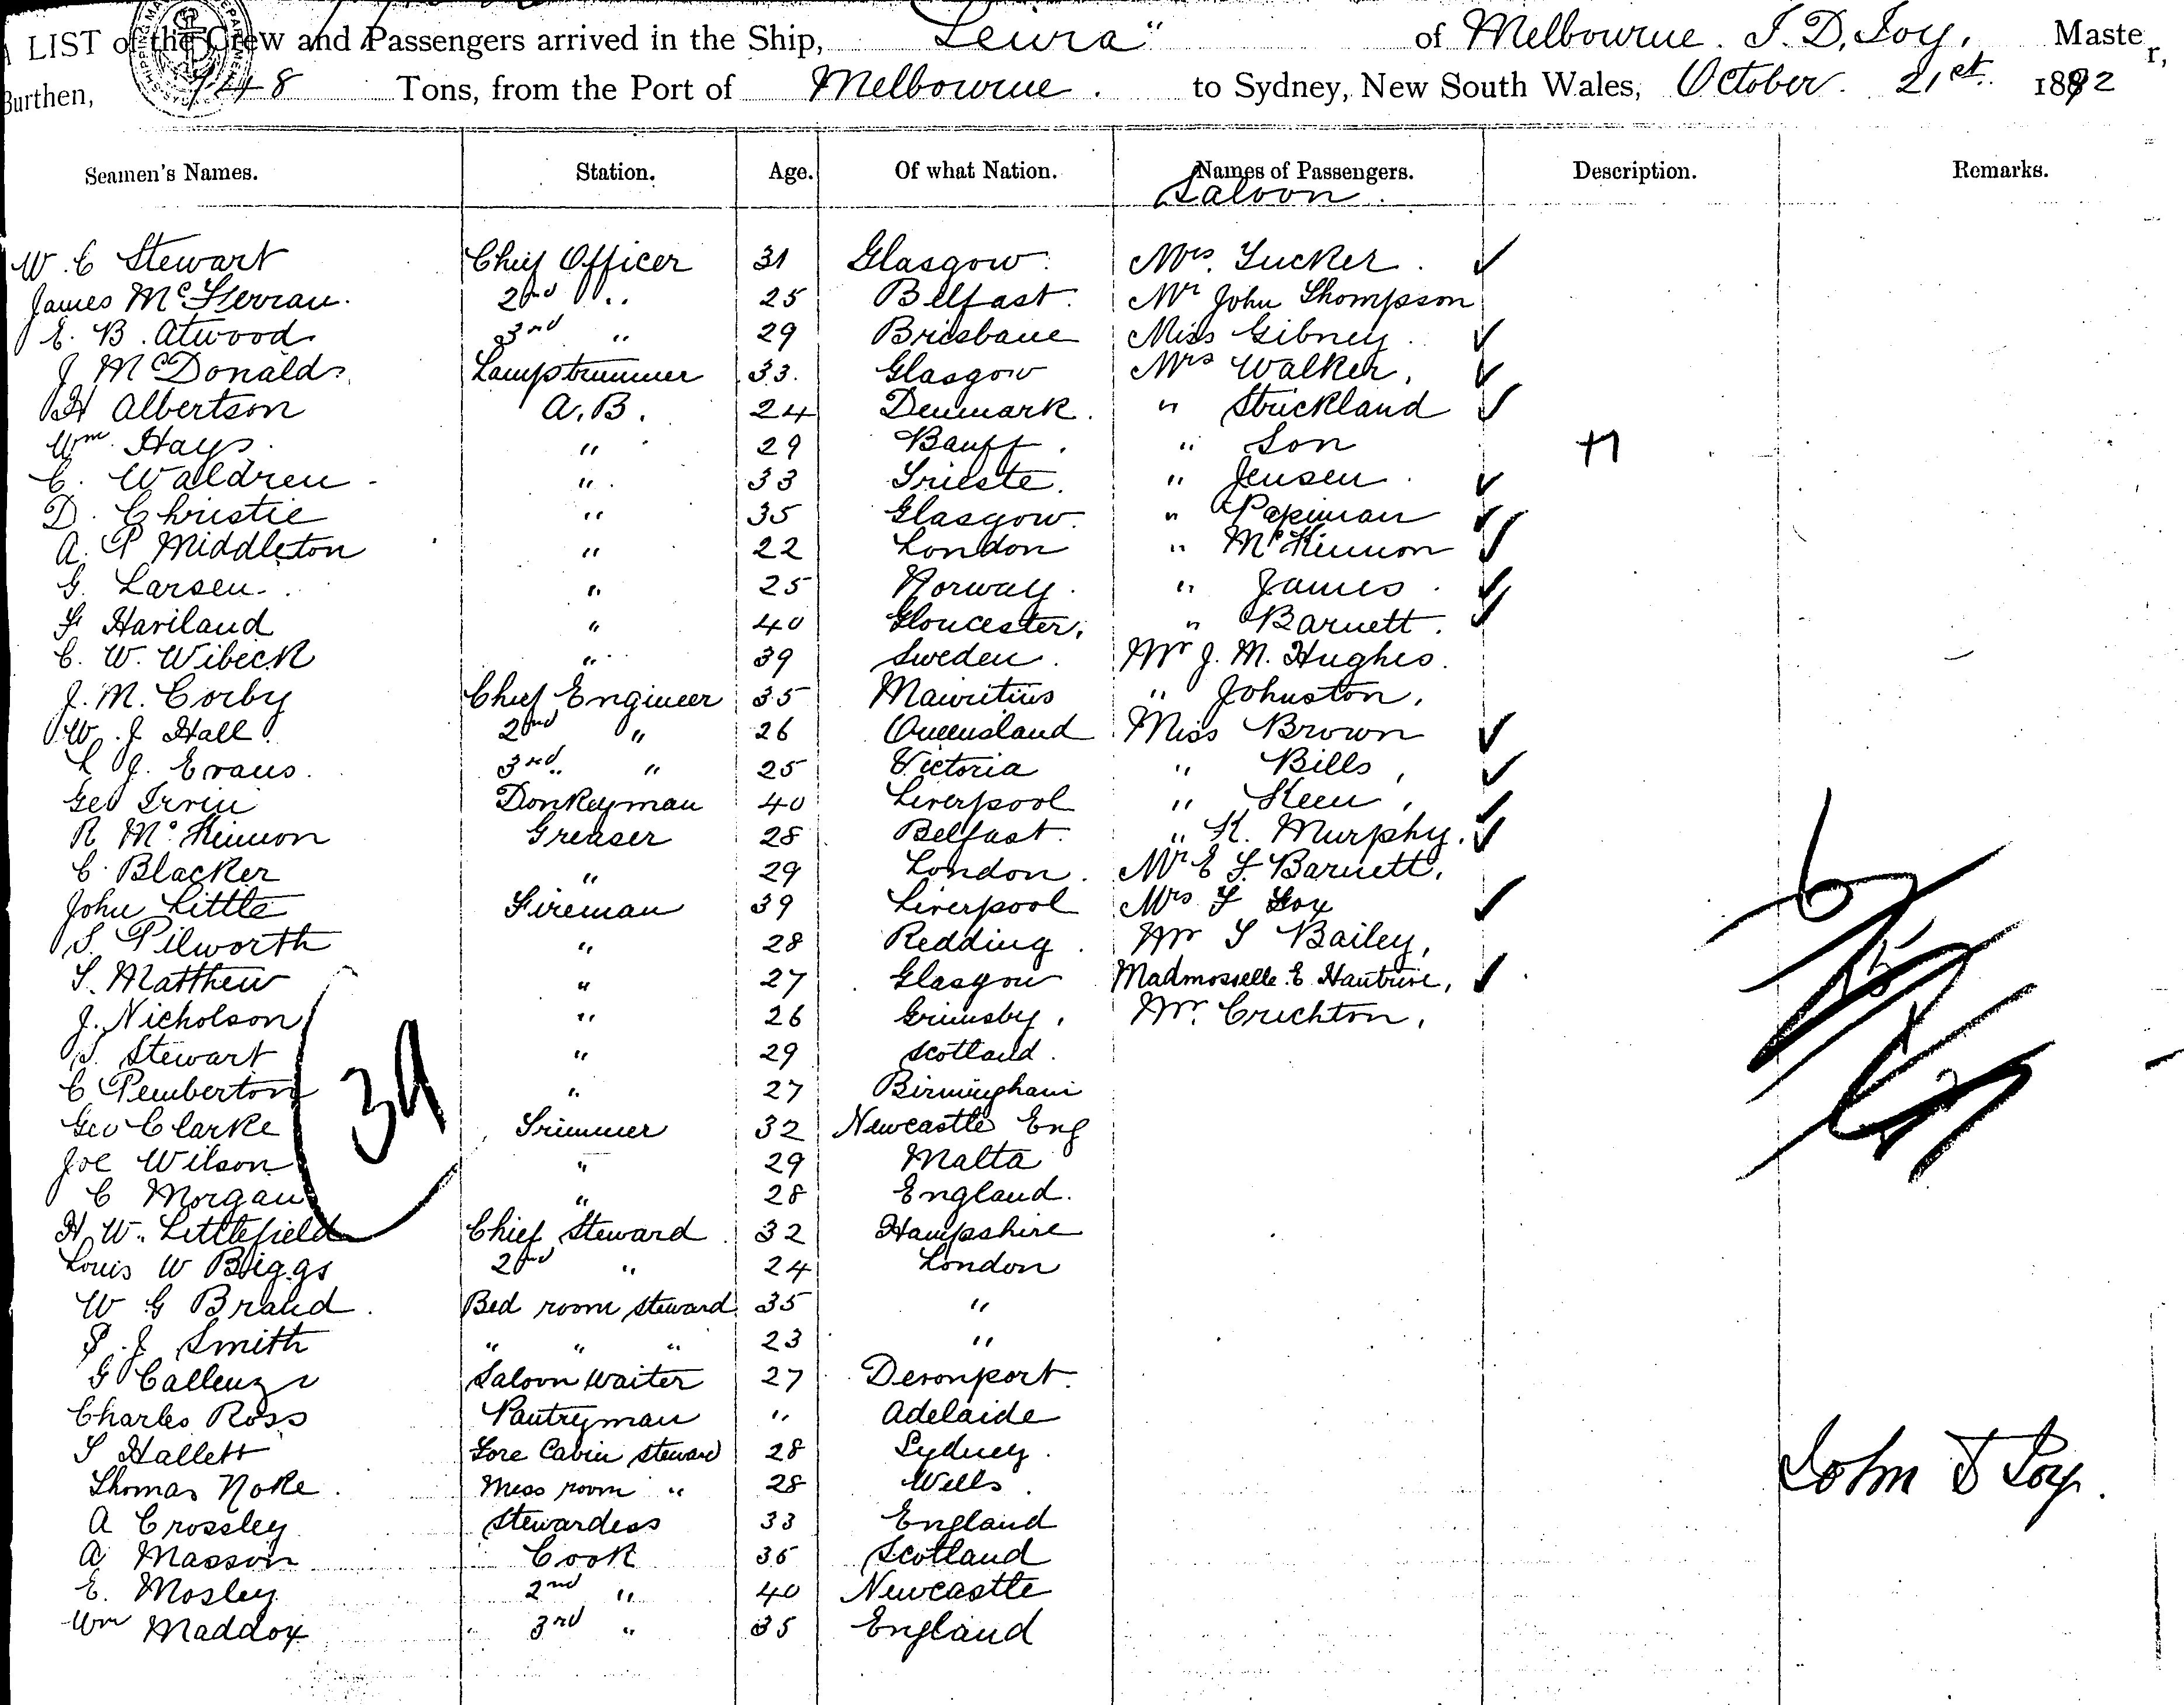 A LIST of the Crew and Passengers arrived in the Ship, "Leura" of Melbourne. J. D. Joy, Master,
Burthen, Tons, from the Port of Melbourne. to Sydney, New South Wales, October 21st 1892
Seamen's Names. Station. Age. Of what Nation. Names of Passengers. Description. Remarks.
Saloon.
W. C Stewart Chief Officer 31 Glasgow. Mrs. Tucker.
James McFerran. 2nd " 25 Belfast. Mr John Thompson
E. B. Atwood 3rd " 29 Brisbane Miss Gibney.
J McDonald Lamptrimmer 33. Glasgow Mrs Walker,
H Albertson A.B. 24 Denmark. " Strickland
Wm. Hays. " 29 Banff. " Son
C. Waldren " 33 Trieste. " Jensen.
D. Christie " 35 Glasgow. " Papinau
A. P Middleton " 22 London " McKinnon
G. Larsen. " 25 Norway. " James.
F Haviland " 40 Gloucester. " Barnett.
C. W. Wibeck " 39 Sweden. Mr J. M. Hughes.
J. M. Corby Chief Engineer 35 Mauritius " Johnston,
W. J Hall 2nd " 26 Queensland Miss Brown
L J. Evans. 3rd " 25 Victoria " Bills,
Geo Irvin Donkeyman 40 Liverpool " Keen,
R McKinnon Greaser 28 Belfast. " K. Murphy.
C. Blacker " 29 London. Mr E F Barnett,
John Little Fireman 39 Liverpool Mrs F Fox
S. Pilworth " 28 Redding. Mr S Bailey,
S. Matthew " 27 Glasgow Madmosselle E
J. Nicholson " 26 Grimsby. Mr. Crichton,
Stewart " 29 Scotland.
C Pemberton " 27 Birmingham
Geo Clarke Trimmer 32 Newcastle Eng
Joe Wilson " 29 Malta
C Morgan " 28 England.
39
H. W. Littlefield Chief Steward 32 Hampshire
Louis W Biggs 2nd " 24 London
W G Brand. Bed room steward 35 "
P. J Smith " " " 23 "
G Saloon Waiter 27 Devonport.
Charles Ross Pantryman " Adelaide
S Hallett Fore Cabin steward 28 Sydney.
Thomas Noke. Mess room " 28 Wells.
A Crossley Stewardess 33 England
A Masson Cook 36 Scotland
E. Mosley 2nd " 40 Newcastle
Wm Maddox 3rd " 35 England
John D Joy.